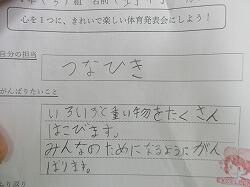 心を1つに、きれいで楽しい体育発表会にしよう!
自分の担当
つなひき
がんばりたいこと
いろいろと重い物をたくさん
はこびます。
みんなのためになるようにがん
ばります。